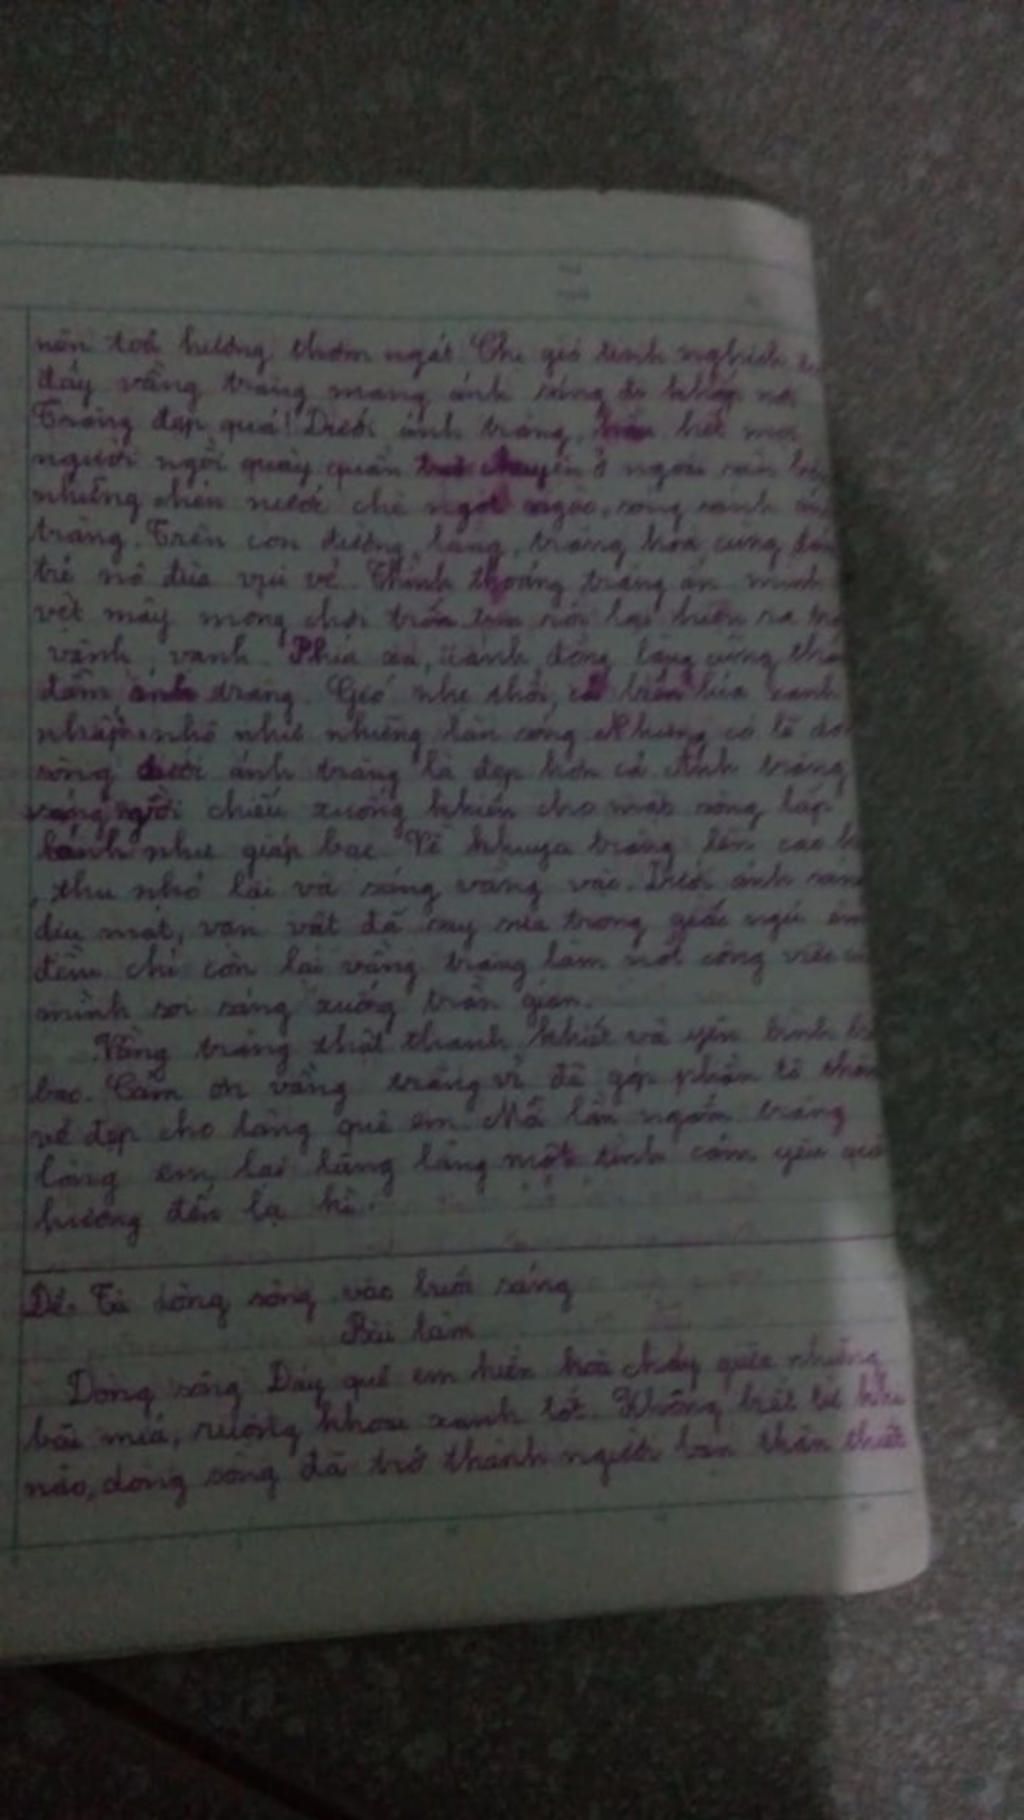 nên toả hương thơm ngát. Chị gió tinh nghịch
đẩy vầng trăng mang ánh sáng đi khắp
Trăng đẹp quá! Dưới ánh trăng, hầu hết mọi
người ngồi quây quần trò chuyện ở ngoài sân
những chén nước chè ngọt ngào, sóng sánh
trăng. Trên con đường làng, trăng hoà cùng
trẻ nô đùa vui vẻ. Thỉnh thoảng trăng ẩn mình
vệt mây mỏng chơi trốn tìm rồi lại hiện ra
vành vạnh. Phía xa, cánh đồng làng cũng
đẫm ánh trăng. Gió nhẹ thổi, cả biển lúa xanh
nhấp nhô như những làn sóng. Nhưng có lẽ
sông dưới ánh trăng là đẹp hơn cả. Ánh trăng
vàng ngời chiếu xuống khiến cho mặt sông lấp
lánh như giáp bạc. Về khuya trăng lên cao
, thu nhỏ lại và sáng vằng vặc. Dưới ánh
dịu mát, vạn vật đã say sưa trong giấc ngủ
đềm chỉ còn lại vầng trăng làm nốt công việc
mình soi sáng xuống trần gian.
Vầng trăng thật thanh khiết và yên bình
bao. Cảm ơn vầng trăng vì đã góp phần tô
vẻ đẹp cho làng quê em. Mỗi lần ngắm trăng
lòng em lại lâng lâng một tình cảm yêu
hương đến lạ kì.
Đề: Tả dòng sông vào buổi sáng
Bài làm
Dòng sông Đáy quê em hiền hoà chảy qua những
bãi mía, ruộng khoai xanh tốt. Không biết từ khi
nào, dòng sông đã trở thành người bạn thân thiết